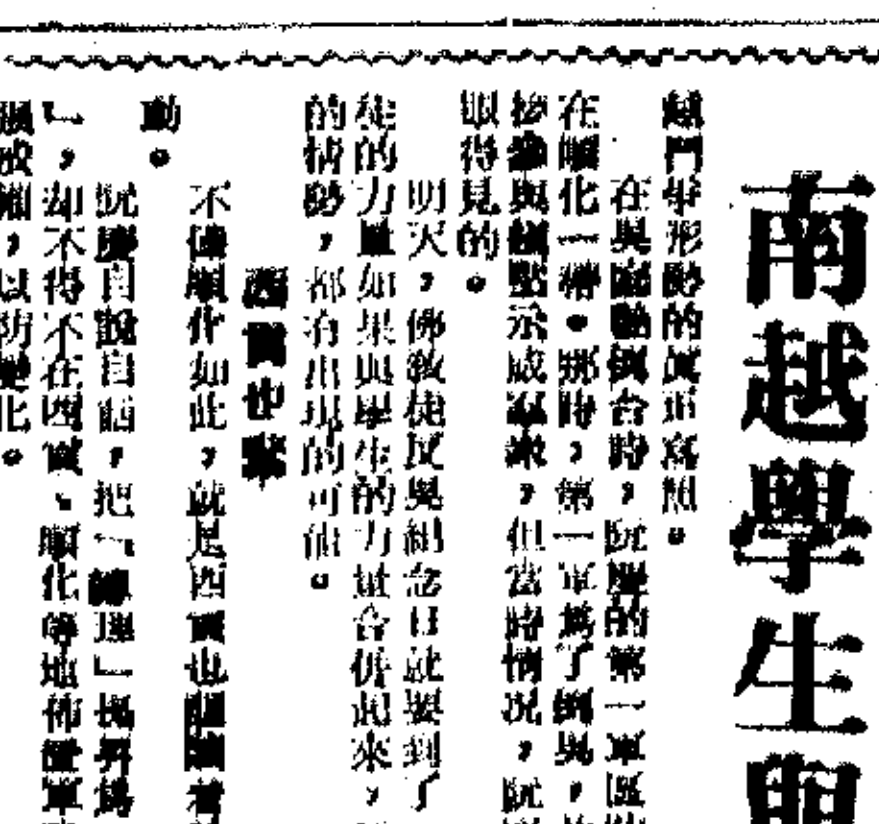 南越學生與
越鬥爭形勢的真正寫照。
在吳庭艷倒台時,阮慶的第一軍區
在順化一帶。那時,第一軍為了倒吳,
但當時情況,阮
眼得見的。
明天,佛教徒反吳紀念日就要到了
徒的力量如果與學生的力量合併起來,
的情勢,都有出現的可能。
西貢也緊
不僅順化如此,就是西貢也醞釀着
動。
阮慶自說自話,把「總理」攝昇為
」,却不得不在西貢、順化等地佈置軍
以防變化。